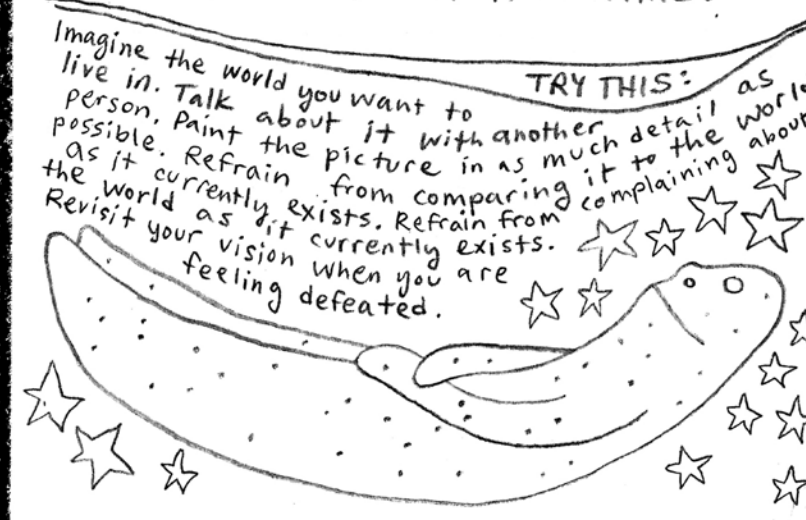 TRY THIS:
Imagine the world you want to
live in. Talk about it with another
person. Paint the picture in as much detail as
possible. Refrain from comparing it to the world
as it currently exists. Refrain from complaining about
the world as it currently exists.
Revisit your vision when you are
feeling defeated.